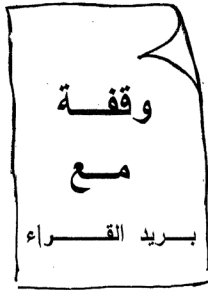 وقفة
مع
بريد القراء